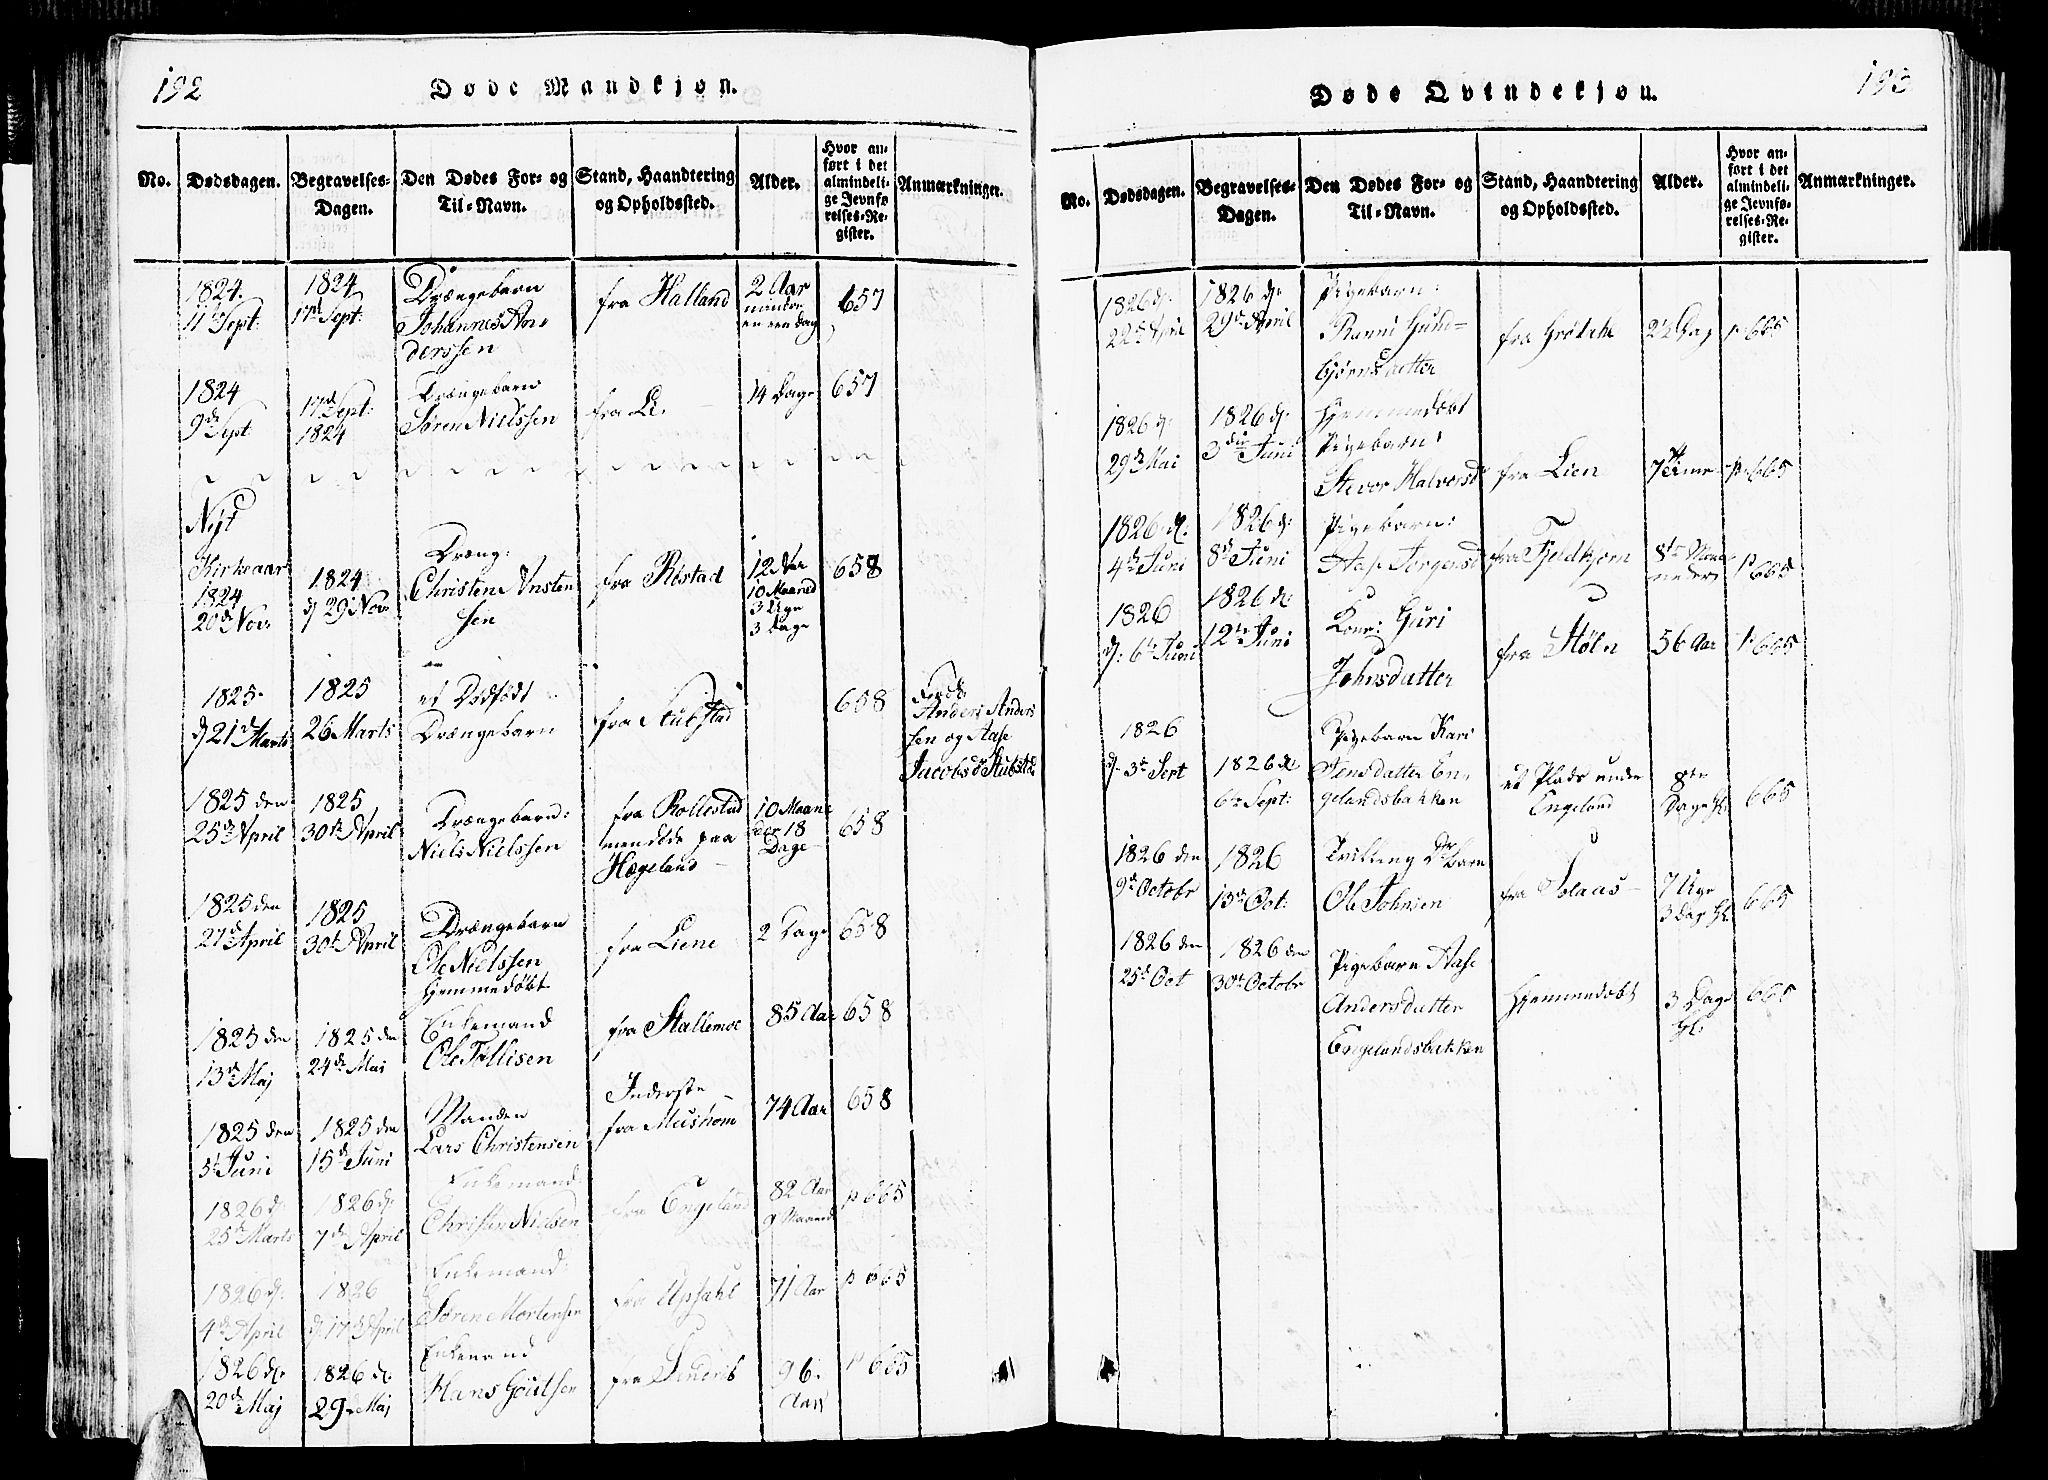 192
Døde Mandkjøn.
No.
Dødsdagen.
Begravelses-
Dagen.
Den Dødes For- og
Til-Navn.
Stand, Haandtering
og Opholdssted.
Alder.
Hvor an-
ført i det
almindeli-
ge Jevnfø
relses-Re-
gister.
Anmærkninger.
1824.
11te Sept:
1824
17de Sept:
Drængebarn
Johannes An-
derssen
fra Halland
2 Aar
mindre
en een dag
657
1824
9de Sept
17de Sept:
1824
Drængebarn
Søren Nielssen
fra Li.
14 Dage
657
Nyt
Kirkeaar
1824
20de Nov.
1824
d 29 Nov.
Dræng:
Christen
sen
fra Røstad
12
10 Maaned
3 Uge
3 Dage
658
1825
d 21de Marts
1825
26 Marts
et Dødfødt
Drængebarn
fra Stubstad
658
Anders Anders
sen og Aase
Jacobsd Stubstd
1825 den
25de April
1825
30te April
Drængebarn:
Niels Nielssen
fra Rollestad
men døde paa
Hægeland
10 Maane
der 18
Dage
658
1825 den
27de April
1825
30te April
Drængebarn
Ole Nielssen
hjemmedøbt
fra Liene
2 Dage
658
1825 den
13de Maj
1825 den
24de Mai
Enkemand
Ole Tellisen
fra Stallemoe
85 Aar
658
1825 den
5te Juni
1825 den
15de Juni
Manden
Lars Christensen
Inderste
fra Mushom
74 Aar
658
1826 d.
25de Marts
1826 d.
7de April
Enkemand
Christen Nielsen
fra Engeland
82 Aar
9 Maaned
p 665
1826 d.
4de April
1826
d 17de April
Enkemand:
Søren Mortensen
fra Upsahl
71 Aar
p 665
1826 d.
20de Maj
1826 d.
29 Maj
Enkemand
Hans
fra
96
Aar
p 665
193
Døde Qvindekjøn.
No.
Dødsdagen.
Begravelses-
Dagen.
Den Dødes For- og
Til-Navn.
Stand, Haandtering
og Opholdssted.
Alder.
Hvor an-
ført i det
almindeli-
ge Jevnfø-
relses-Re-
gister.
Anmærkninger.
1826 d.
22de April
1826 d.
29de April
Pigebarn:
Ranni Gun-
bjørnsdatter
fra
p 665
1826 d.
29de Mai
1826 d.
3die Juni
Hjemmedøbt
Pigebarn:
Halvorsd
fra Lien
p 665
1826 d.
4de Juni
1826 d.
8de Juni
Pigebarn:
Aase Jørgensd
fra Fjeldkjern
p 665
1826
d. 6te Juni
1826 d.
12te Juni
Guri
Johnsdatter
fra Støln
56 Aar
p 665
1826
d. 3de Sept
1826 d
6te Sept:
Pigebarn Kari
Jensdatter En-
gelandsbakken
et Plads under
Engeland
8te
Dage
665
1826 den
9de Octobr
1826
13de Oct:
Tvilling Dr barn
Ole Johnsen
fra Solaas
7 Uger
3 Dag
665
1826 den
25de Oct
1826 den
30te Octobr
Pigebarn Aase
Andersdatter
Engelandsbakken
Hjemmedøbt
3 Dage
665